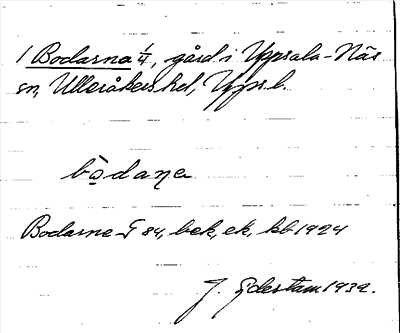 1 Bodarna 1/4, gård i Uppsala-Näs
sn, Ulleråkers hd, Upps. l.
bo̤daṇa
Bodarne G 84, bek, ek, kb 1924
J. Götestam 1932.